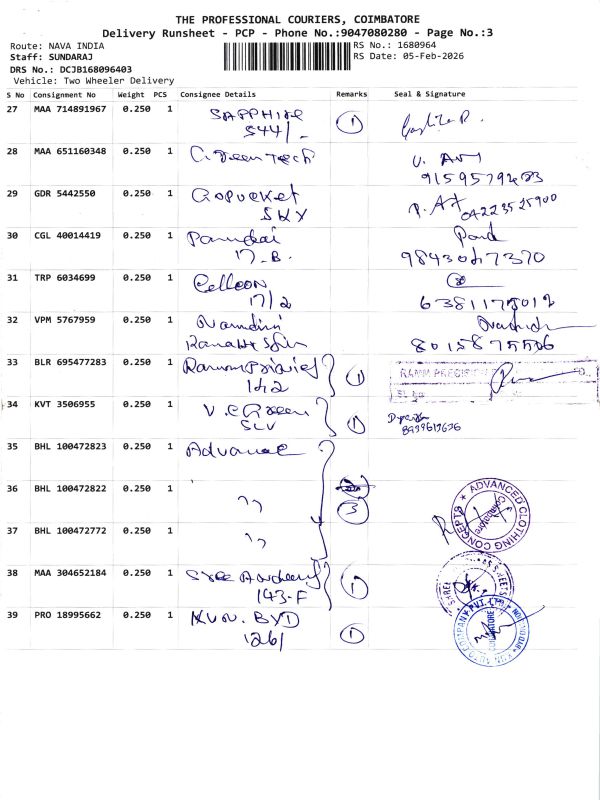 THE PROFESSIONAL COURIERS, COIMBATORE
Delivery Runsheet - PCP - Phone No.:9047080280 - Page No.:3
Route: NAVA INDIA
RS No.: 1680964
Staff: SUNDARAJ
RS Date: 05-Feb-2026
DRS No.: DCJB168096403
Vehicle: Two Wheeler Delivery
S No Consignment No Weight PCS Consignee Details Remarks Seal & Signature
27 MAA 714891967 0.250 1 SAPPHIRE 1
544/-
28 MAA 651160348 0.250 1 C. Teentech
9159579483
29 GDR 5442550 0.250 1 Gopucket
SKY 04223525900
30 CGL 40014419 0.250 1
17-B. 9843047370
31 TRP 6034699 0.250 1 Celleon
17/2
32 VPM 5767959 0.250 1 Nandini
8015875506
33 BLR 695477283 0.250 1 1
142
RAMM PRECISION
34 KVT 3506955 0.250 1 V. C Green 1
SLV
35 BHL 100472823 0.250 1 Advance
36 BHL 100472822 0.250 1 " 3
37 BHL 100472772 0.250 1 "
ADVANCED CLOTHING CONCEPTS
Coimbatore
38 MAA 304652184 0.250 1 Sree 1
143-F
SHREE SWEETS
39 PRO 18995662 0.250 1 KUN. BYD 1
126/
COIMBATORE